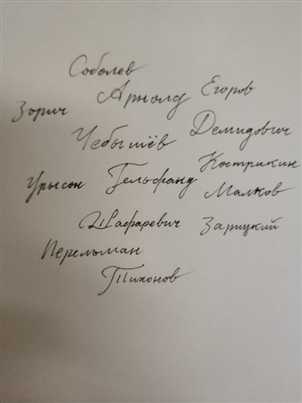 Соболев
Арнолд Егоров
Зорич
Чебышёв Демидович
Кострикин
Урысон Гельфанд Малков
Шафаревич Зарицкий
Перельман
Тихонов